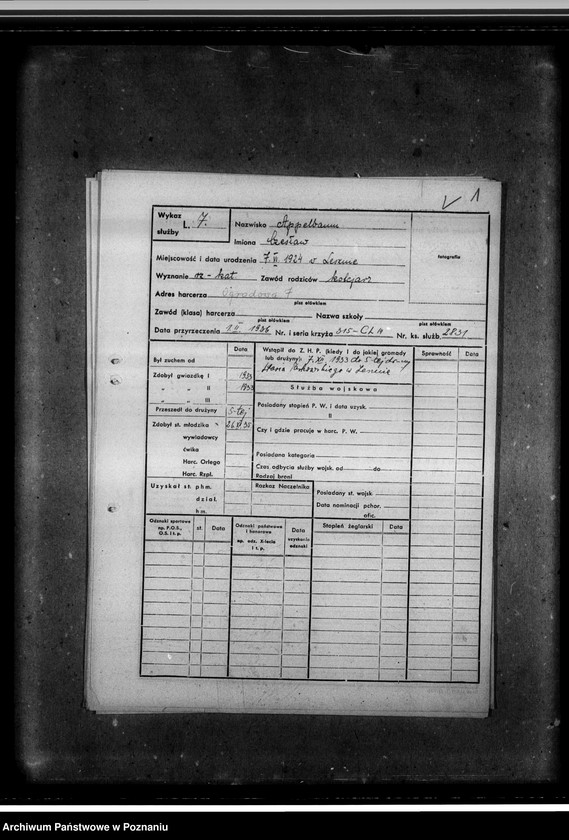 1
Wykaz L. 7.
służby
Nazwisko Appelbaum
Imiona Czesław
fotografia
Miejscowość i data urodzenia 7 VI 1924 w Lesznie
Wyznanie rz-kat Zawód rodziców kolejarz
Adres harcerza Ogrodowa 7
pisz ołówkiem
Zawód (klasa) harcerza Nazwa szkoły
pisz ołówkiem pisz ołówkiem
Data przyrzeczenia 1936 Nr. i seria krzyża 315-CLH Nr. ks. służb. 2831
Data
Wstąpił do Z. H. P. (kiedy i do jakiej gromady
lub drużyny) 7. XII. 1933 do 5-tej druż.
w Lesznie
Sprawność Data
Był zuchem od
Zdobył gwiazdkę I 1933
„ „ II 1933
„ „ III
Przeszedł do drużyny 5-tej
Zdobył st. młodzika
wywiadowcy
ćwika
Harc. Orlego
Harc. Rzpl.
Służba wojskowa
Posiadany stopień P. W. i data uzysk.
II
Czy i gdzie pracuje w harc. P. W.
Posiadana kategoria
Czas odbycia służby wojsk. od do
Rodzaj broni
Uzyskał st. phm.
dział.
hm.
Rozkaz Naczelnika
Posiadany st. wojsk
Data nominacji pchor.
ofic.
Odznaki sportowe
np. P.O.S.,
O.S. i t. p.
st. Data
Odznaki państwowe
i honorowe
np. odz. X-lecia
i t. p.
Data
uzyskania
odznaki
Stopień żeglarski Data
Archiwum Państwowe w Poznaniu